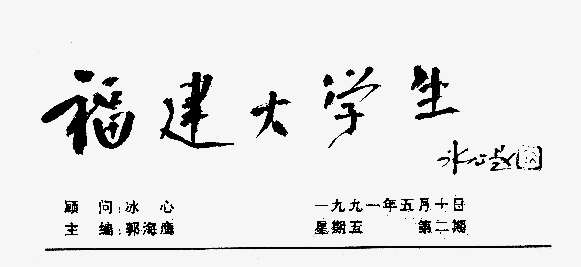 福建大学生
冰心
顾 问：冰 心 一九九一年五月十日
主 编：郭海鹰 星期五 第二期